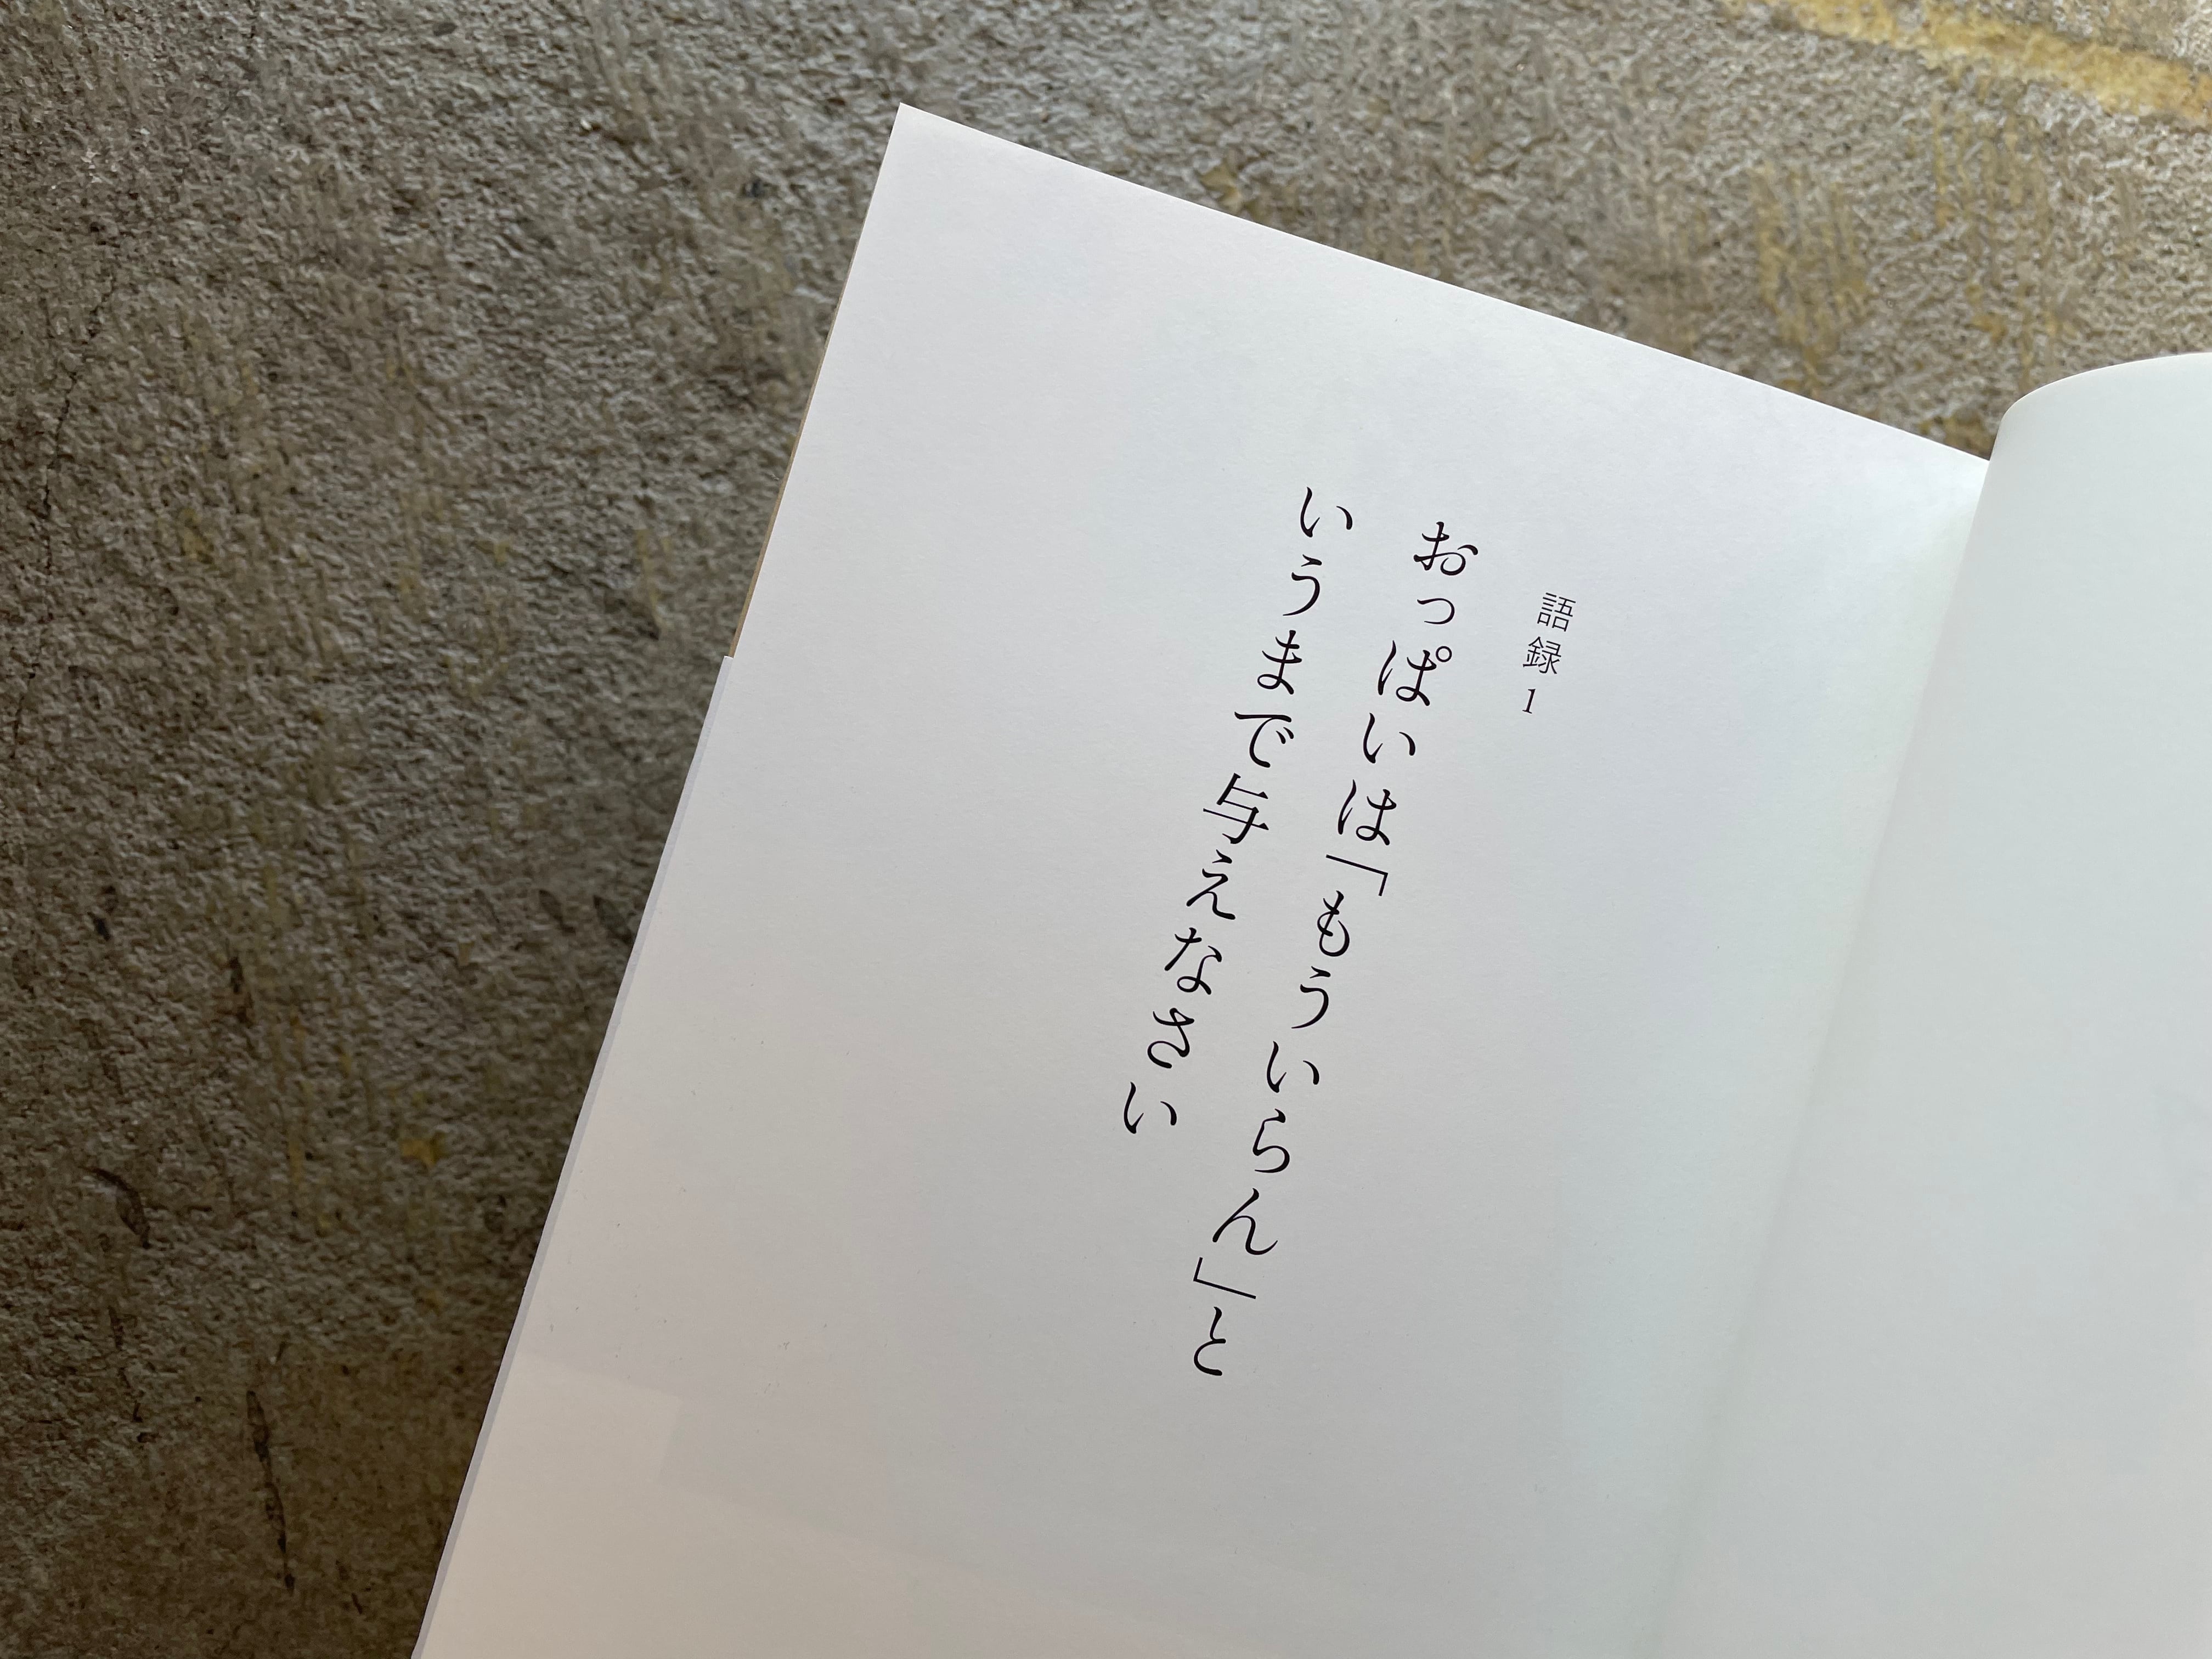 語録1
おっぱいは「もういらん」と
いうまで与えなさい